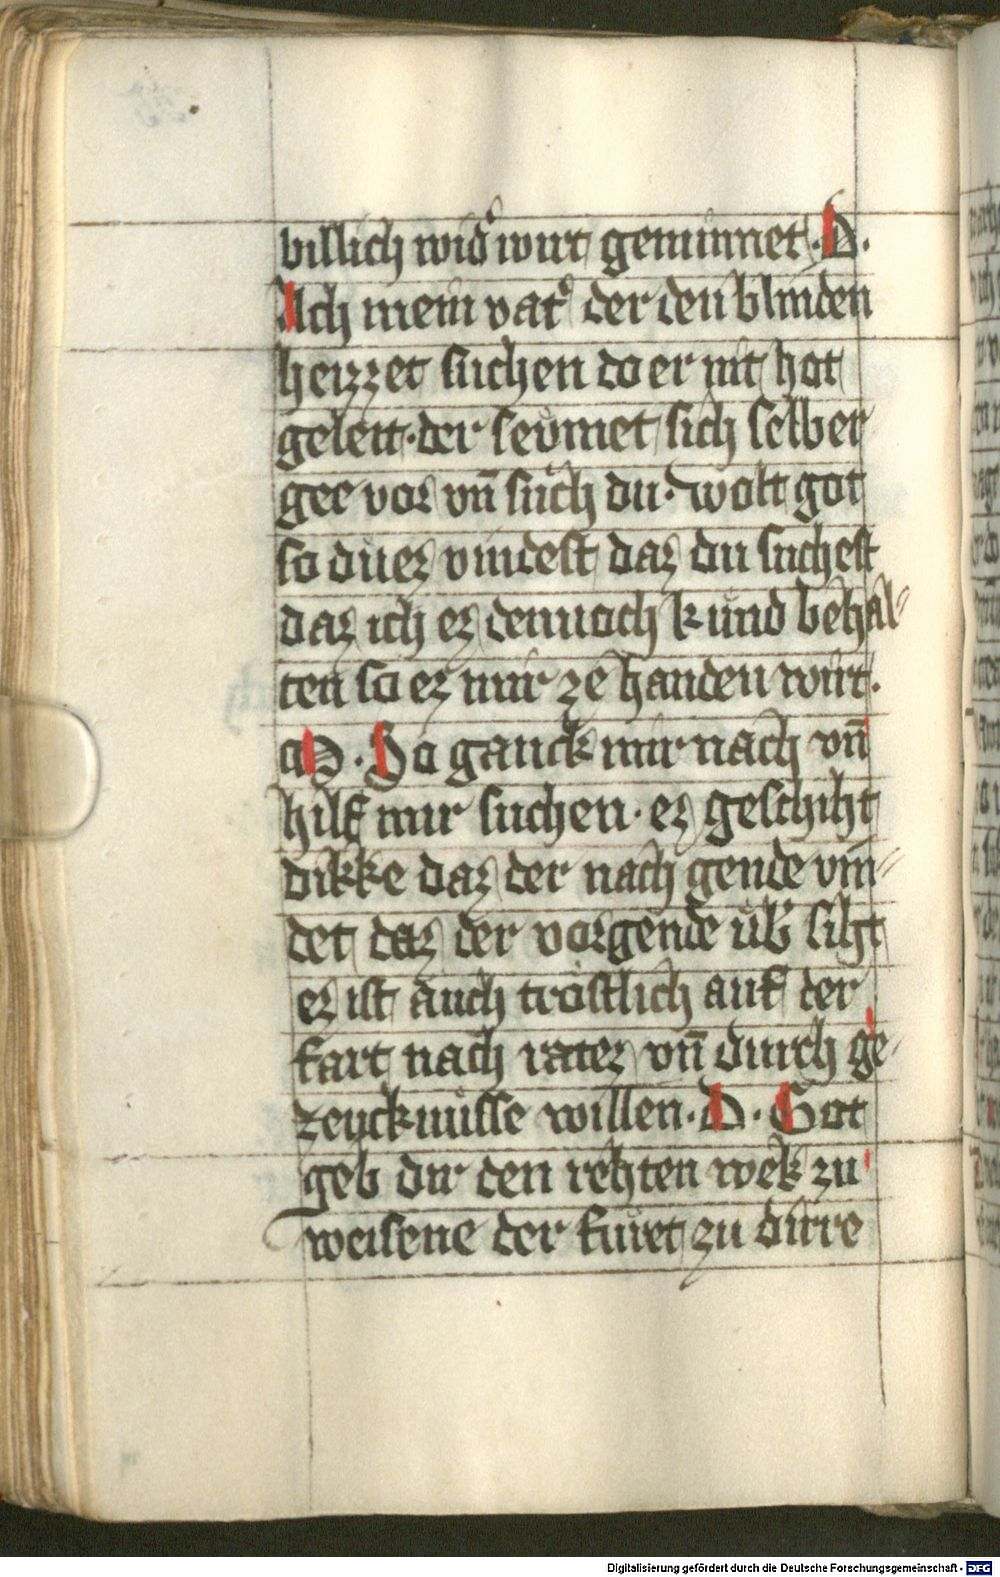 billich wid᾿ wirt geminnet · D ·
Ach mein vat᾿ der den blinden
heizzet suchen do er nit hat
geleit · der seumet sich selber
gee vor vn̄ such du · wolt got
so du ez vindest daz du suchest
daz ich ez dennoch kund behal⸗
ten so ez mir ze handen wirt ·
M · So ganck mir nach vn̄
hilf mir suchen · ez geschiht
dikke daz der nach gende vin⸗
det daz der vorgende üb᾿ siht
ez ist auch tröstlich auf der
fart nach ratez vn̄ durch ge⸗
zeucknüsse willen · D · Got
geb dir den rehten wek zu
weisene der füret zu dirre
Digitalisierung gefördert durch die Deutsche Forschungsgemeinschaft - DFG